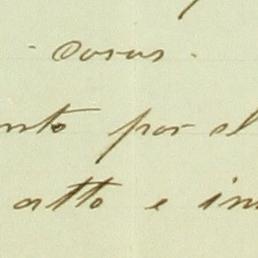 cosas
nto por el
atto e in